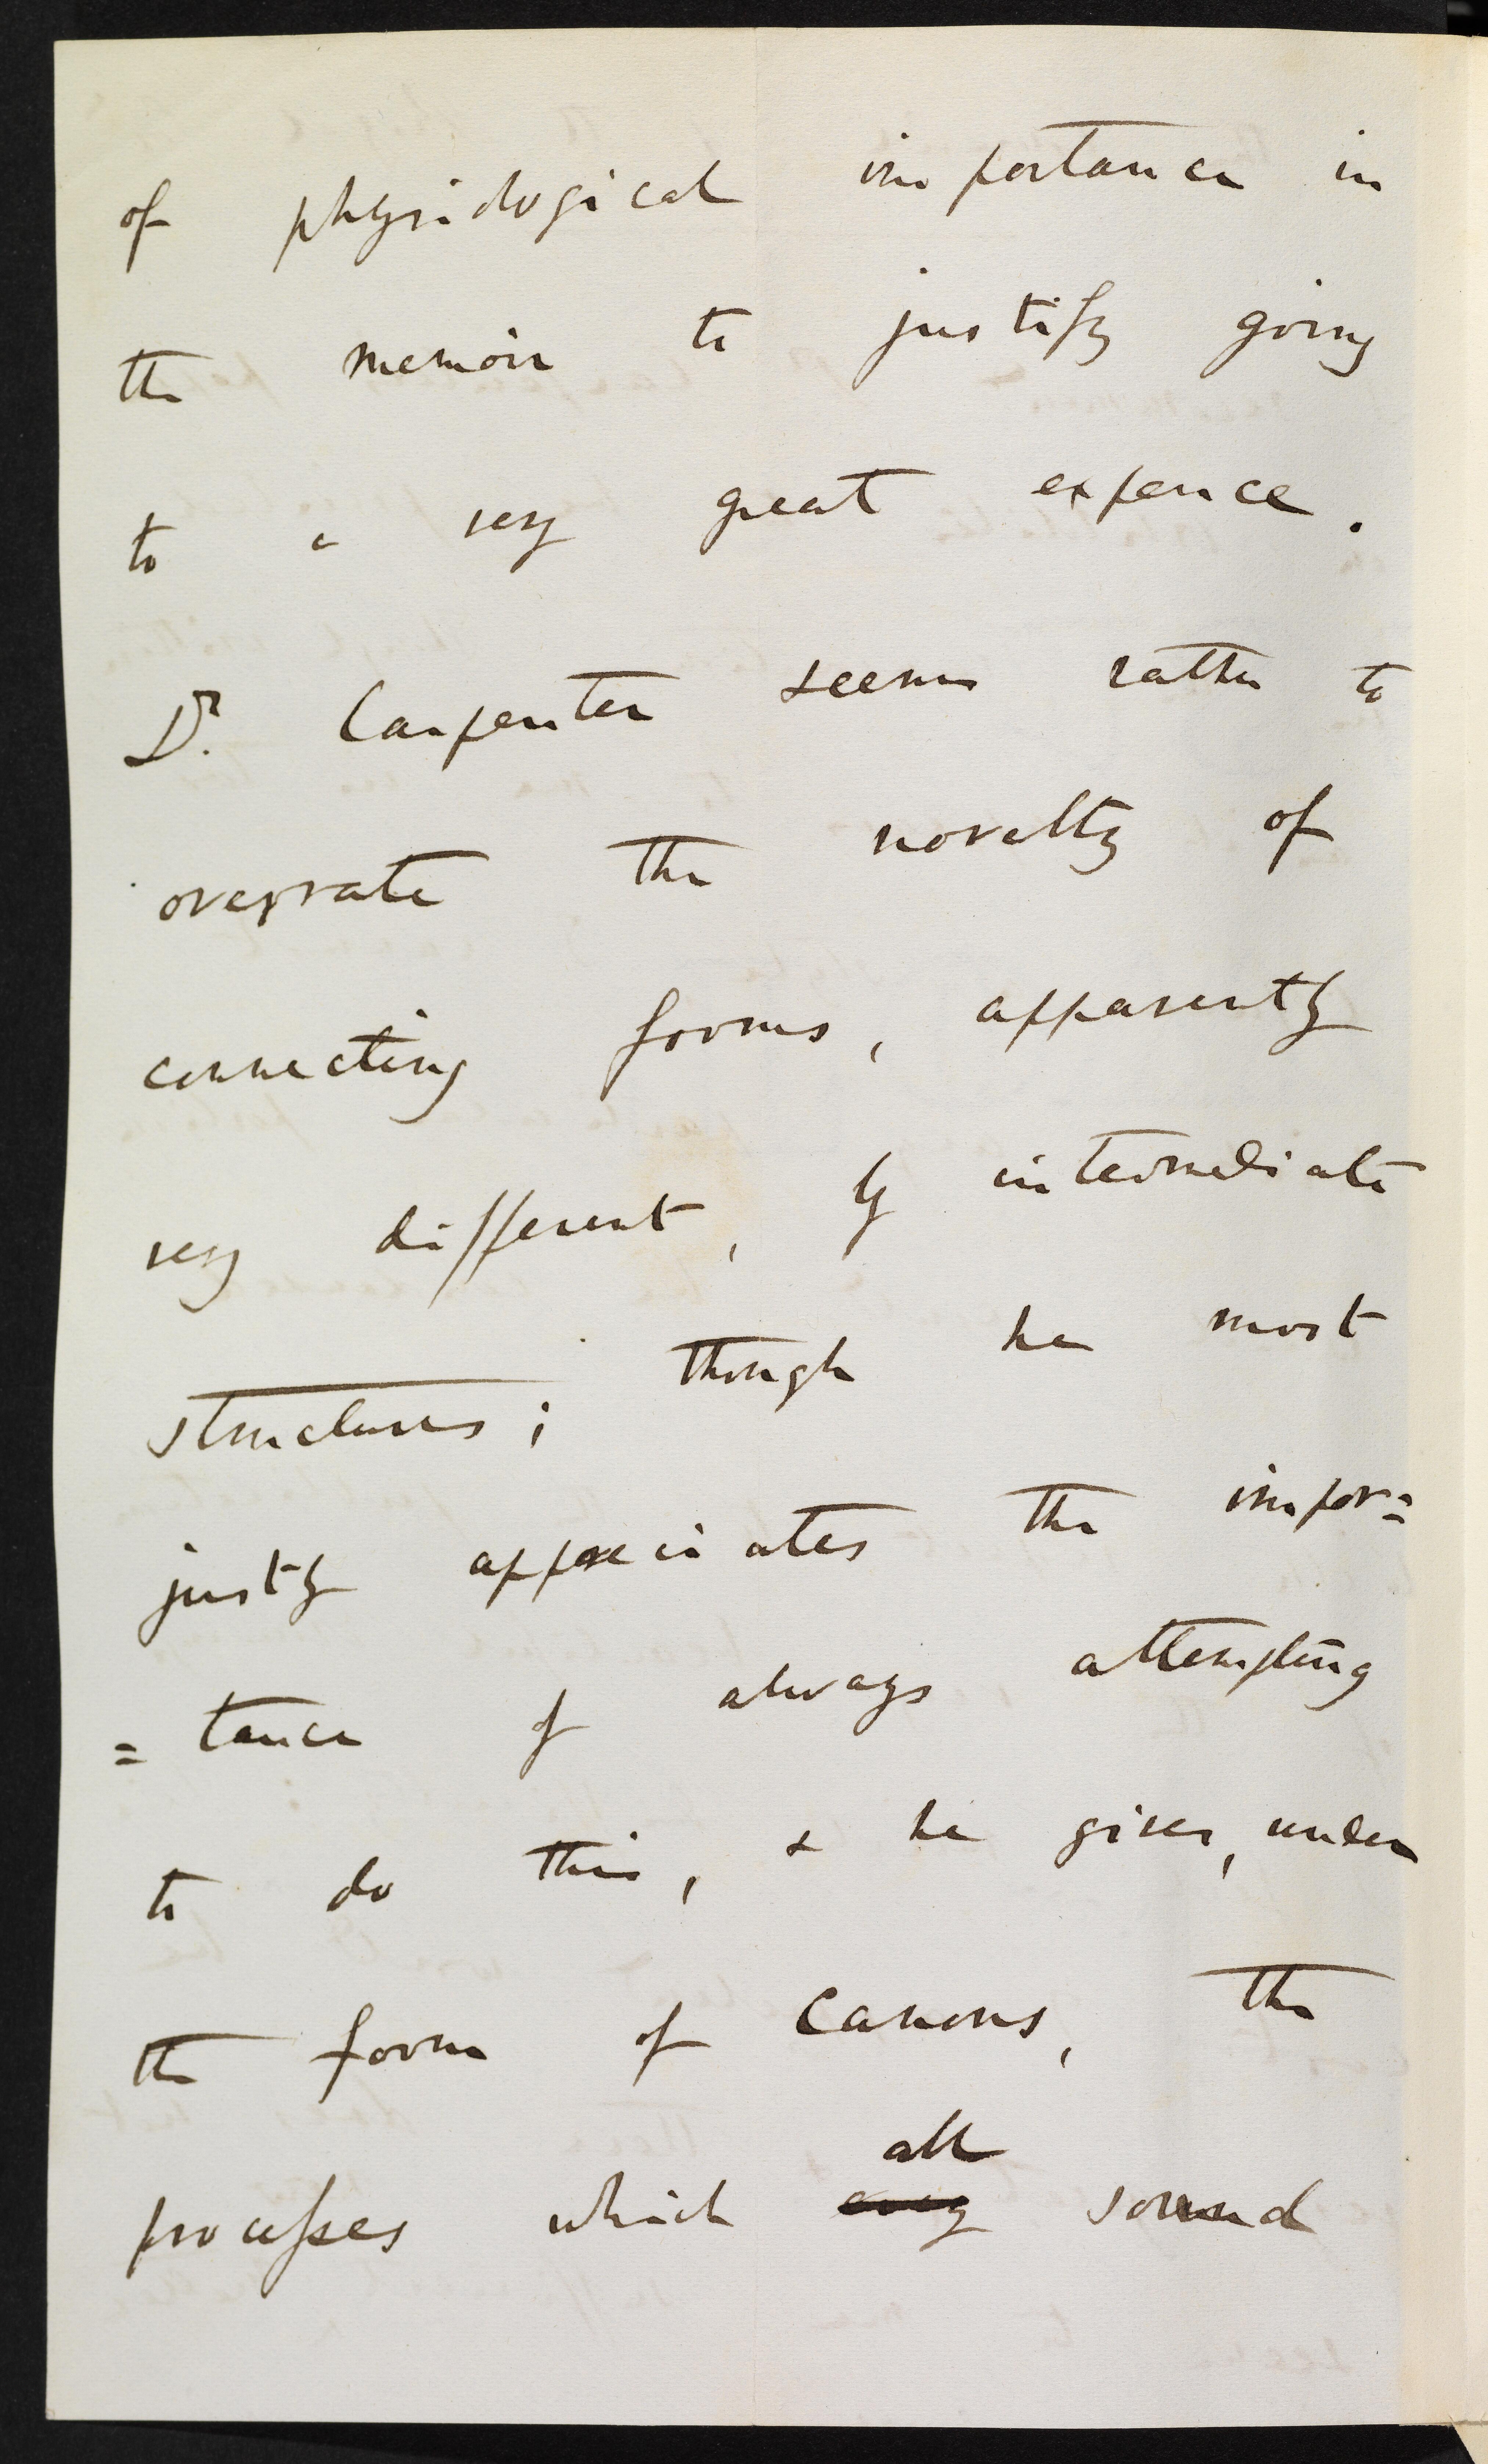 of physiological importance in
the memoir to justify going
to a very great expence.
Dr. Carpenter seems rather to
overrate the novelty of
connecting forms, apparently
very different, by intermediate
structures; though he most
justly appreciates the impor=
=tance of always attempting
to do this, & he gives, under
the form of canons, the
all
processes which every sound